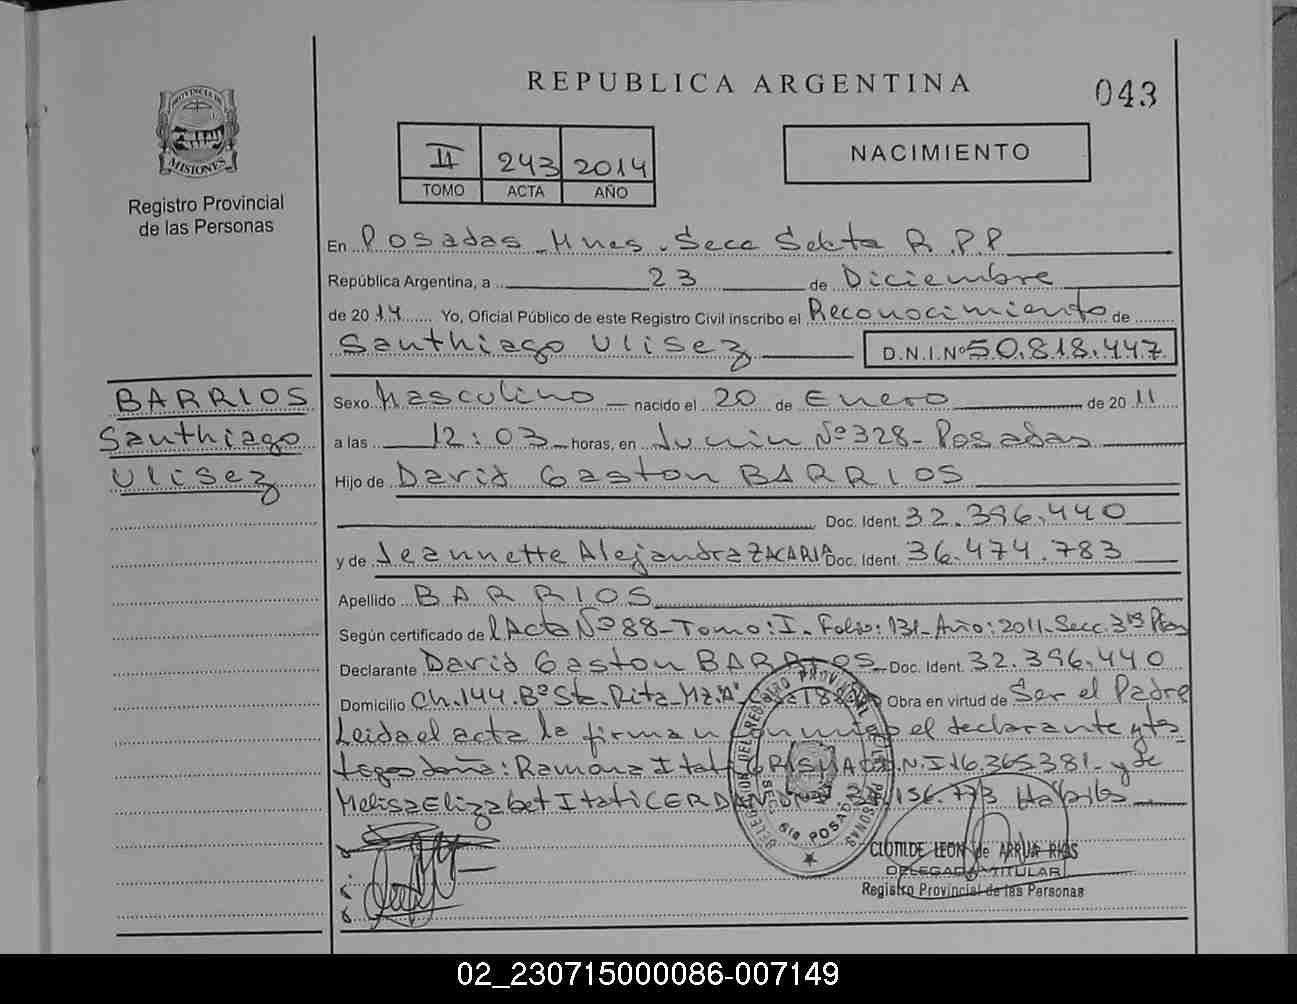 REPUBLICA ARGENTINA
043
PROVINCIA DE
MISIONES
Registro Provincial
de las Personas
II 243 2014
TOMO ACTA AÑO
NACIMIENTO
En Posadas Mnes. Secc Sexta R.P.P
República Argentina, a 23 de Diciembre
de 2014 Yo, Oficial Público de este Registro Civil inscribo el Reconocimiento de
Santhiago Ulisez D.N.I.Nº 50.818.447
BARRIOS
Santhiago
Ulisez
Sexo Masculino nacido el 20 de Enero de 2011
a las 12:03 horas, en Junin Nº 328 - Posadas
Hijo de David Gaston BARRIOS
Doc. Ident. 32.396.440
y de Jeannette Alejandra ZACARIA Doc. Ident. 36.474.783
Apellido BARRIOS
Según certificado de l Acta Nº 88 - Tomo: I. Folio: 131 - Año: 2011. Secc. 3ra
Declarante David Gaston BARRIOS Doc. Ident. 32.396.440
Domicilio Ch. 144. Bº Sta. Rita - Mz. "A" Obra en virtud de Ser el Padre
Leida el acta la firman el declarante y
doña: Ramona Itati D.N.I 16.365.381 - y de
Melisa Elizabet Itati .156.773
DELEGACION DEL REGISTRO PROVINCIAL DE LAS PERSONAS
SEC. 6ta POSADAS
CLOTILDE LEON de ARRUA RIOS
DELEGADA TITULAR
Registro Provincial de las Personas
02_230715000086-007149